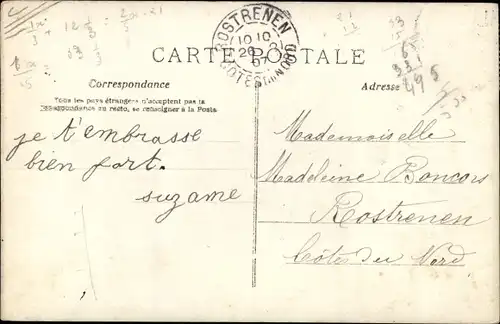 ROSTRENEN
10 10
COTES DU NORD
CARTE POSTALE
Correspondance
Tous les pays étrangers n'acceptent pas la
correspondance au recto, se renseigner à la Poste.
je t'embrasse
bien fort.
suzame
Adresse
Mademoiselle
Madeleine Boncors
Rostrenen
Côtes du Nord